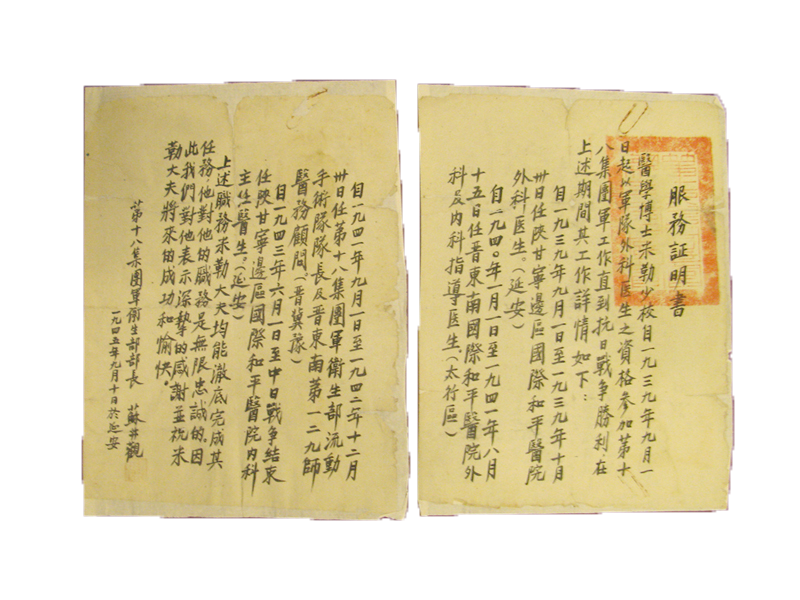 服務証明書
醫學博士米勒少校自一九三九年九月一
日起以軍隊外科医生之資格参加第十
八集團軍工作直到抗日戰争勝利.在
上述期間其工作詳情如下：
自一九三九年九月一日至一九三九年十月
卅日任陝甘寧邊區國際和平醫院
外科医生。(延安)
自一九四〇年一月一日至一九四一年八月
十五日任晋東南國際和平醫院外
科及内科指導医生(太行區)
自一九四一年九月一日至一九四二年十二月
卅日任第十八集團軍衛生部流動
手術隊隊長及晋東南第一二九師
醫務顧問(晋冀豫)
自一九四三年六月一日至中日戰争結束
任陝甘寧邊區國際和平醫院内科
主任醫生。(延安)
上述職務米勒大夫均能澈底完成其
任務.他對他的職務是無限忠誠的.因
此我們對他表示深摯的感謝並祝米
勒大夫將來的成功和愉快。
第十八集團軍衛生部部長 蘇井觀
一九四五年九月十日於延安